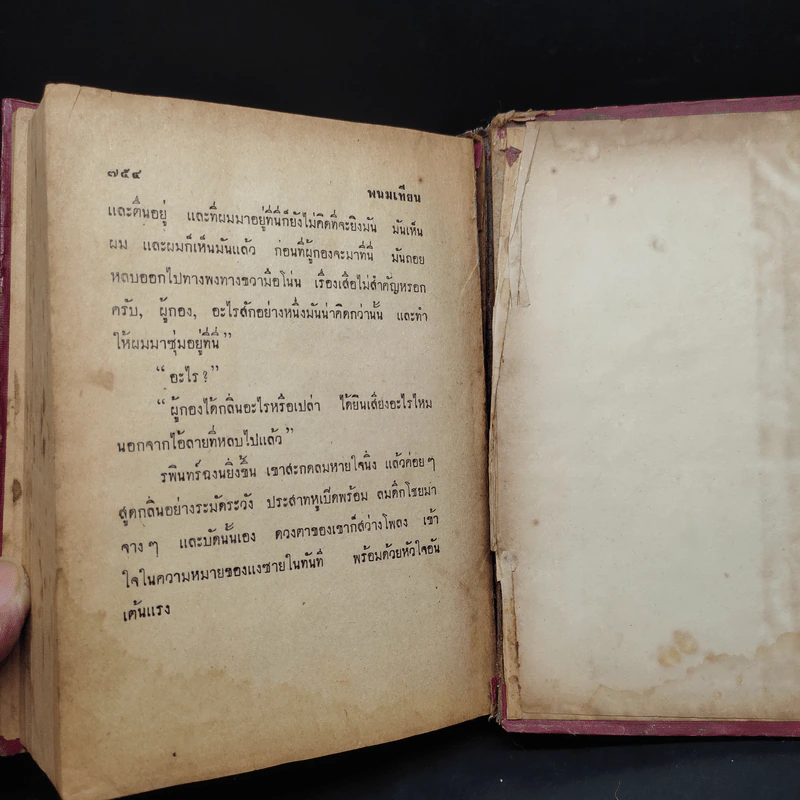 ๗๕๔
พนมเทียน
และตื่นอยู่ และที่ผมมาอยู่ที่นี่ก็ยังไม่คิดที่จะยิงมัน มันเห็น
ผม และผมก็เห็นมันแล้ว ก่อนที่ผู้กองจะมาที่นี่ มันถอย
หลบออกไปทางพงทางขวามือโน่น เรื่องเสือไม่สำคัญหรอก
ครับ, ผู้กอง, อะไรสักอย่างหนึ่งมันน่าคิดกว่านั้น และทำ
ให้ผมมาซุ่มอยู่ที่นี่”
“อะไร?”
“ผู้กองได้กลิ่นอะไรหรือเปล่า ได้ยินเสียงอะไรไหม
นอกจากไอ้ลายที่หลบไปแล้ว”
รพินทร์ฉงนยิ่งขึ้น เขาสะกดลมหายใจนิ่ง แล้วค่อยๆ
สูดกลิ่นอย่างระมัดระวัง ประสาทหูเบิ่ดพร้อม ลมดึกโชยมา
จางๆ และบัดนั้นเอง ดวงตาของเขาก็สว่างโพลง เข้า
ใจในความหมายของแงซายในทันที พร้อมด้วยหัวใจอัน
เต้นแรง